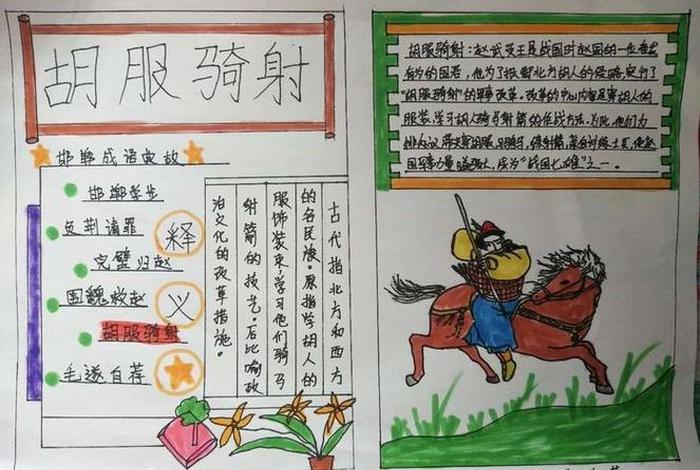 胡服骑射
邯郸成语典故
邯郸学步
负荆请罪
完璧归赵
围魏救赵
胡服骑射
毛遂自荐
释
义
古代指北方和西方
的各民族。原指学胡人的
服饰装束,学习他们骑马
射箭的技艺。后比喻政
治文化的改革措施。
胡服骑射:赵武灵王是战国时赵国的一位奋发
有为的国君,他为了抵御北方胡人的侵略,实行了
“胡服骑射”的军事改革。改革的中心内容是穿胡人的
服装,学习胡人骑马射箭的作战方法。为此,他们力
排众议,带头穿胡服,习骑马,练射箭,亲自训练士兵,使赵
国军事力量日益强大,成为“战国七雄”之一。